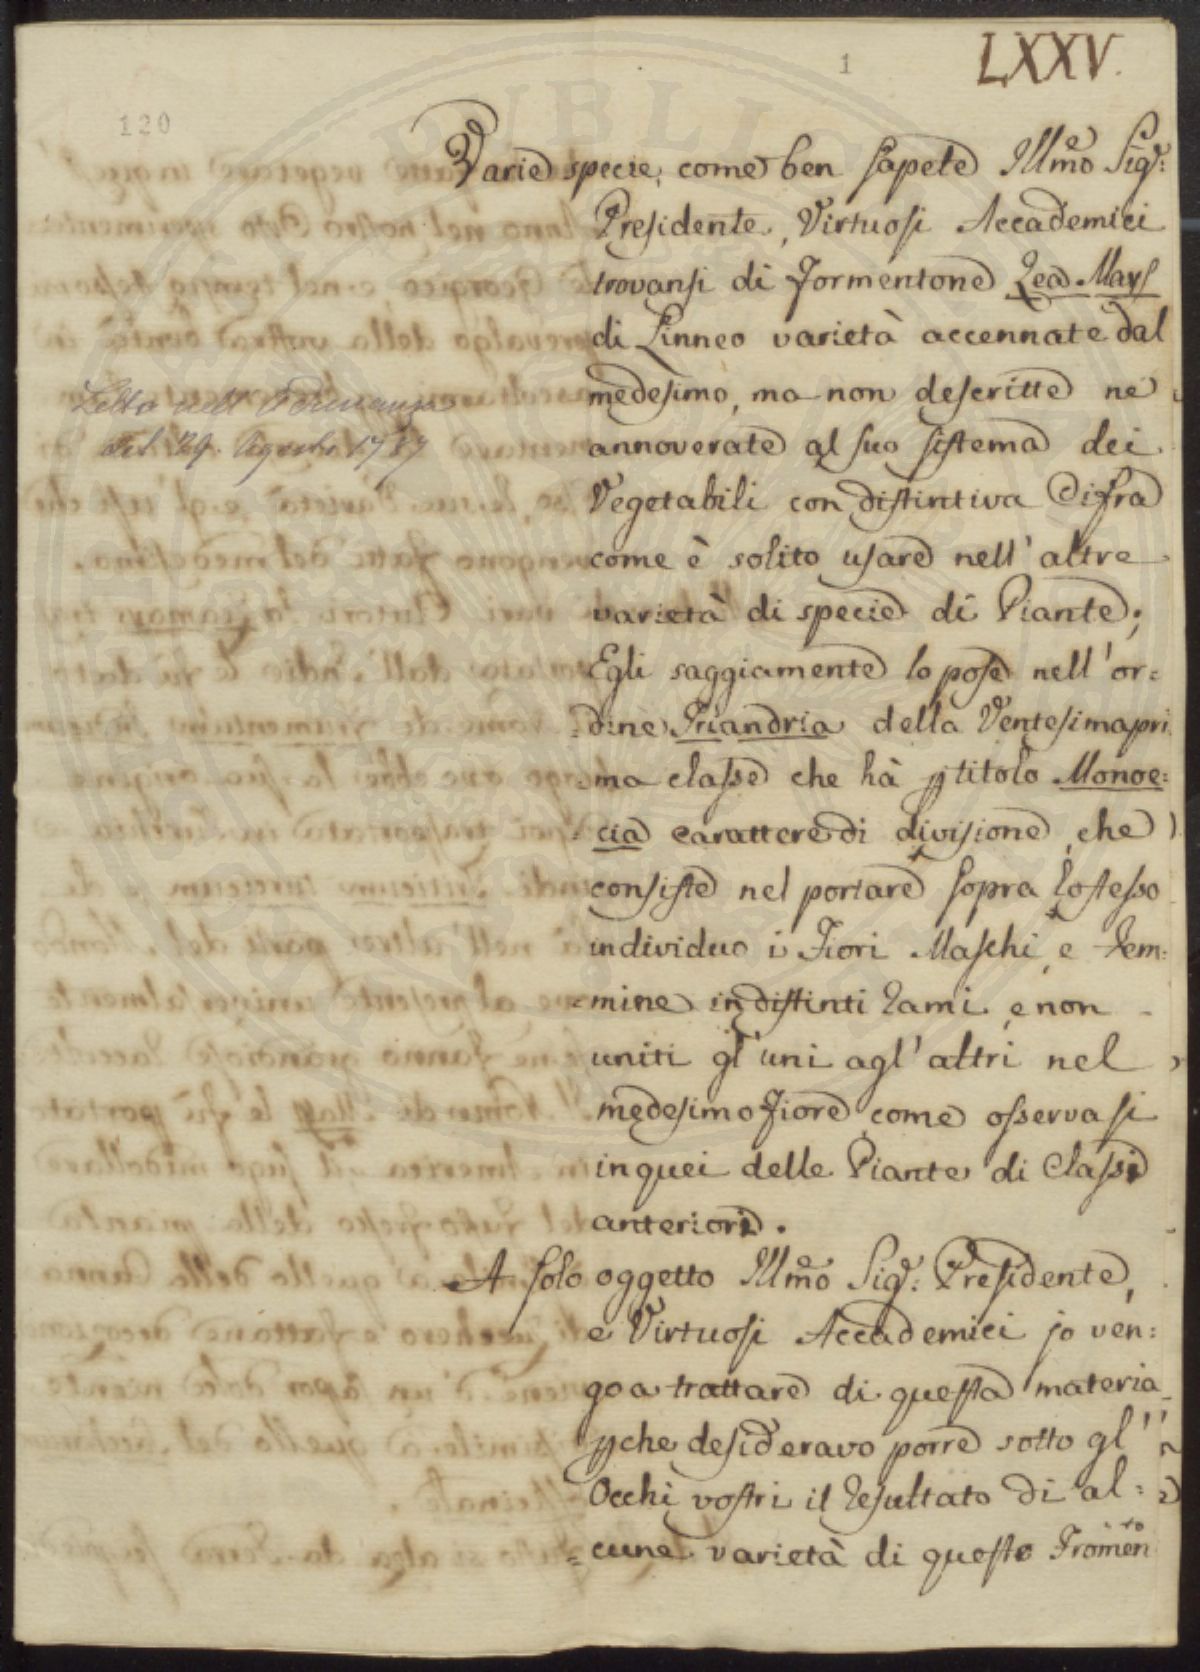 1
LXXV.
120
Varie specie, come ben sapete Illmo Sigr:
Presidente, Virtuosi Accademici
trovansi di Formentone Zea Mays
di Linneo varietà accennate dal
medesimo, ma non descritte ne
annoverate al suo sistema dei
Vegetabili con distintiva Cifra
come è solito usare nell'altre
varietà di specie di Piante;
Egli saggiamente lo pose nell'or=
=dine Triandria della Ventesimapri
=ma classe che hà p titolo Monoe=
=cia carattere di divisione, che
consiste nel portare sopra lo stesso
individuo i Fiori Maschi, e Fem=
=mine in distinti rami, e non
uniti gl'uni agl'altri nel
medesimo Fiore come osservasi
in quei delle Piante di Classi
anteriori.
A solo oggetto Illmo Sigr: Presidente,
e Virtuosi Accademici io ven=
go a trattare di questa materia
pche desideravo porre sotto gl'
Occhi vostri il resultato di al=
=cune varietà di questo Fromento
Letto nell'Adunanza
del 29. Agosto 1787